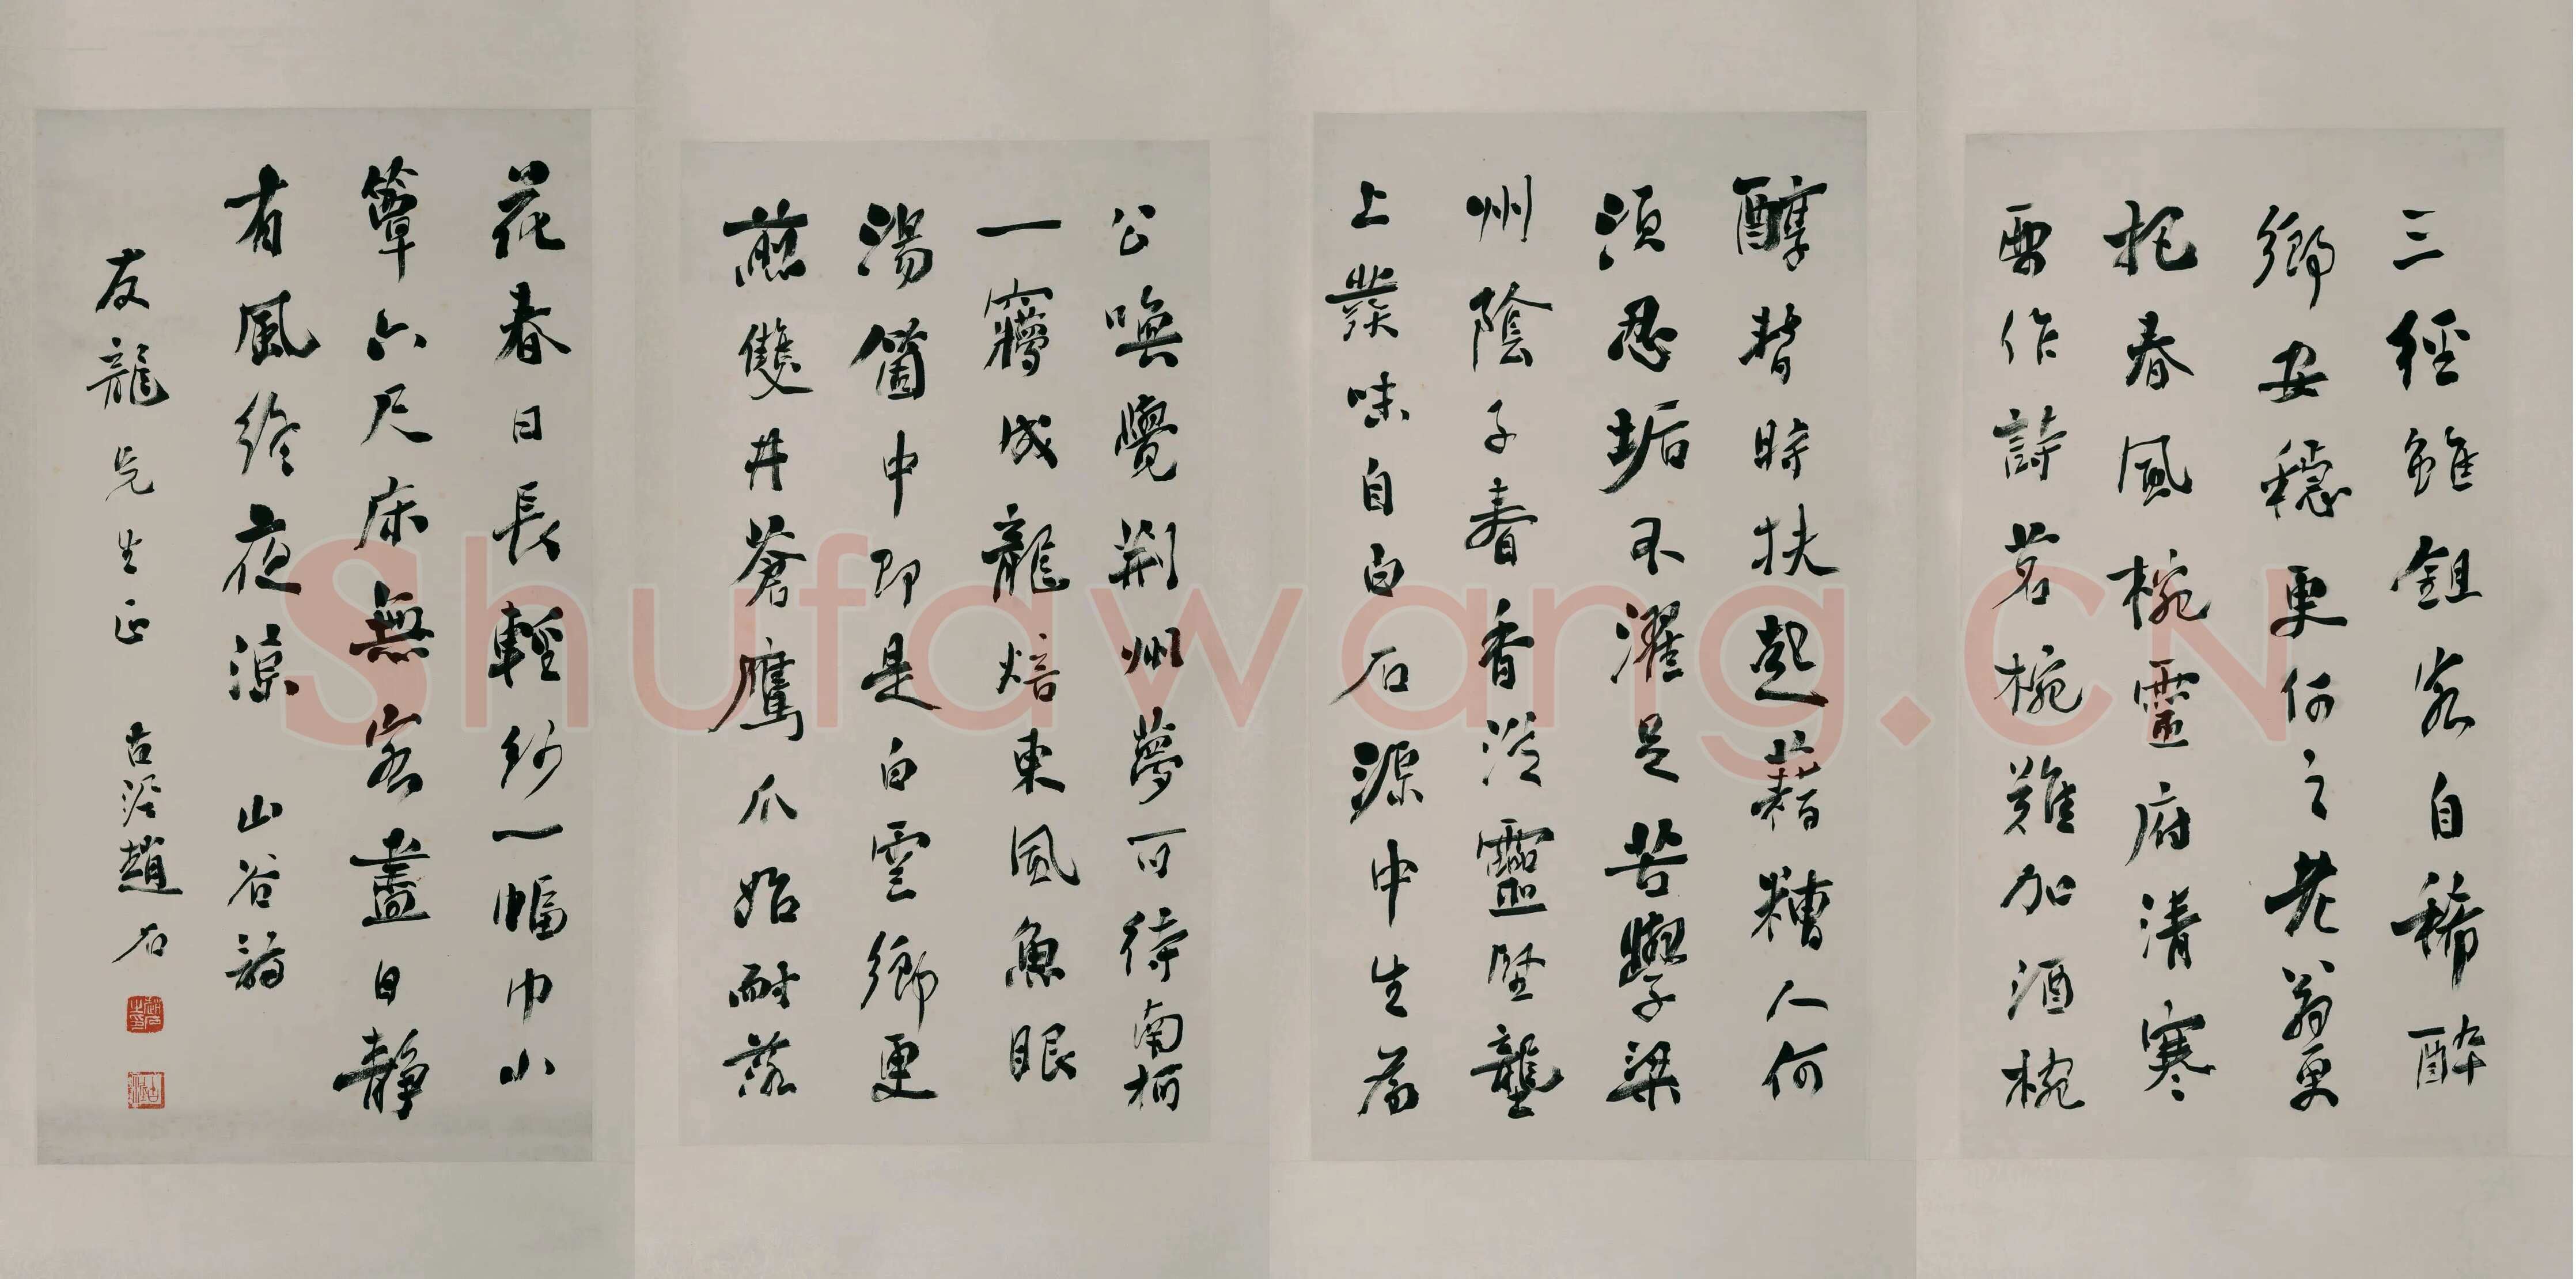 三徑雖鉏客自稀醉
鄉安穩更何之老翁更
把春風椀靈府清寒
要作詩茗椀難加酒椀
醇暫時扶起藉糟人何
須忍垢不濯足苦學梁
州陰子春香從靈堅壟
上發味自白石源中生為
公喚覺荊州夢可待南柯
一夢成龍焙東風魚眼
湯箇中即是白雲鄉更
煎雙井蒼鷹爪始耐落
花春日長輕紗一幅巾小
簟六尺床無客盡日靜
有風終夜涼 山谷詩
友龍先生正 古泥趙石
古泥
Shufawang.CN